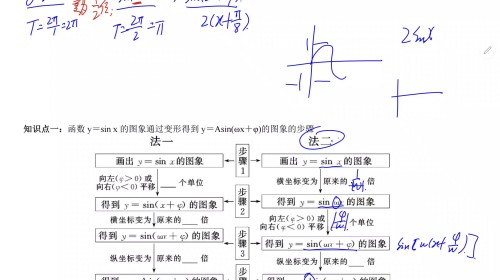 T=2π/1=2π
T=2π/2=π
2(x+π/8)
1
-1
2sinx
知识点一：函数 y=sin x 的图象通过变形得到 y=Asin(ωx+φ)的图象的步骤
法一
法二
步骤1
画出 y=sin x 的图象
画出 y=sin x 的图象
向左(φ>0) 或
向右(φ<0) 平移____个单位
横坐标变为原来的 1/|ω| 倍
步骤2
得到 y=sin(x+φ) 的图象
得到 y=sin ωx 的图象
横坐标变为原来的____倍
向左(φ>0) 或
向右(φ<0) 平移 |φ/ω| 个单位
步骤3
得到 y=sin(ωx+φ) 的图象
得到 y=sin(ωx+φ) 的图象
sin[ω(x+φ/ω)]
纵坐标变为原来的____倍
纵坐标变为原来的____倍
步